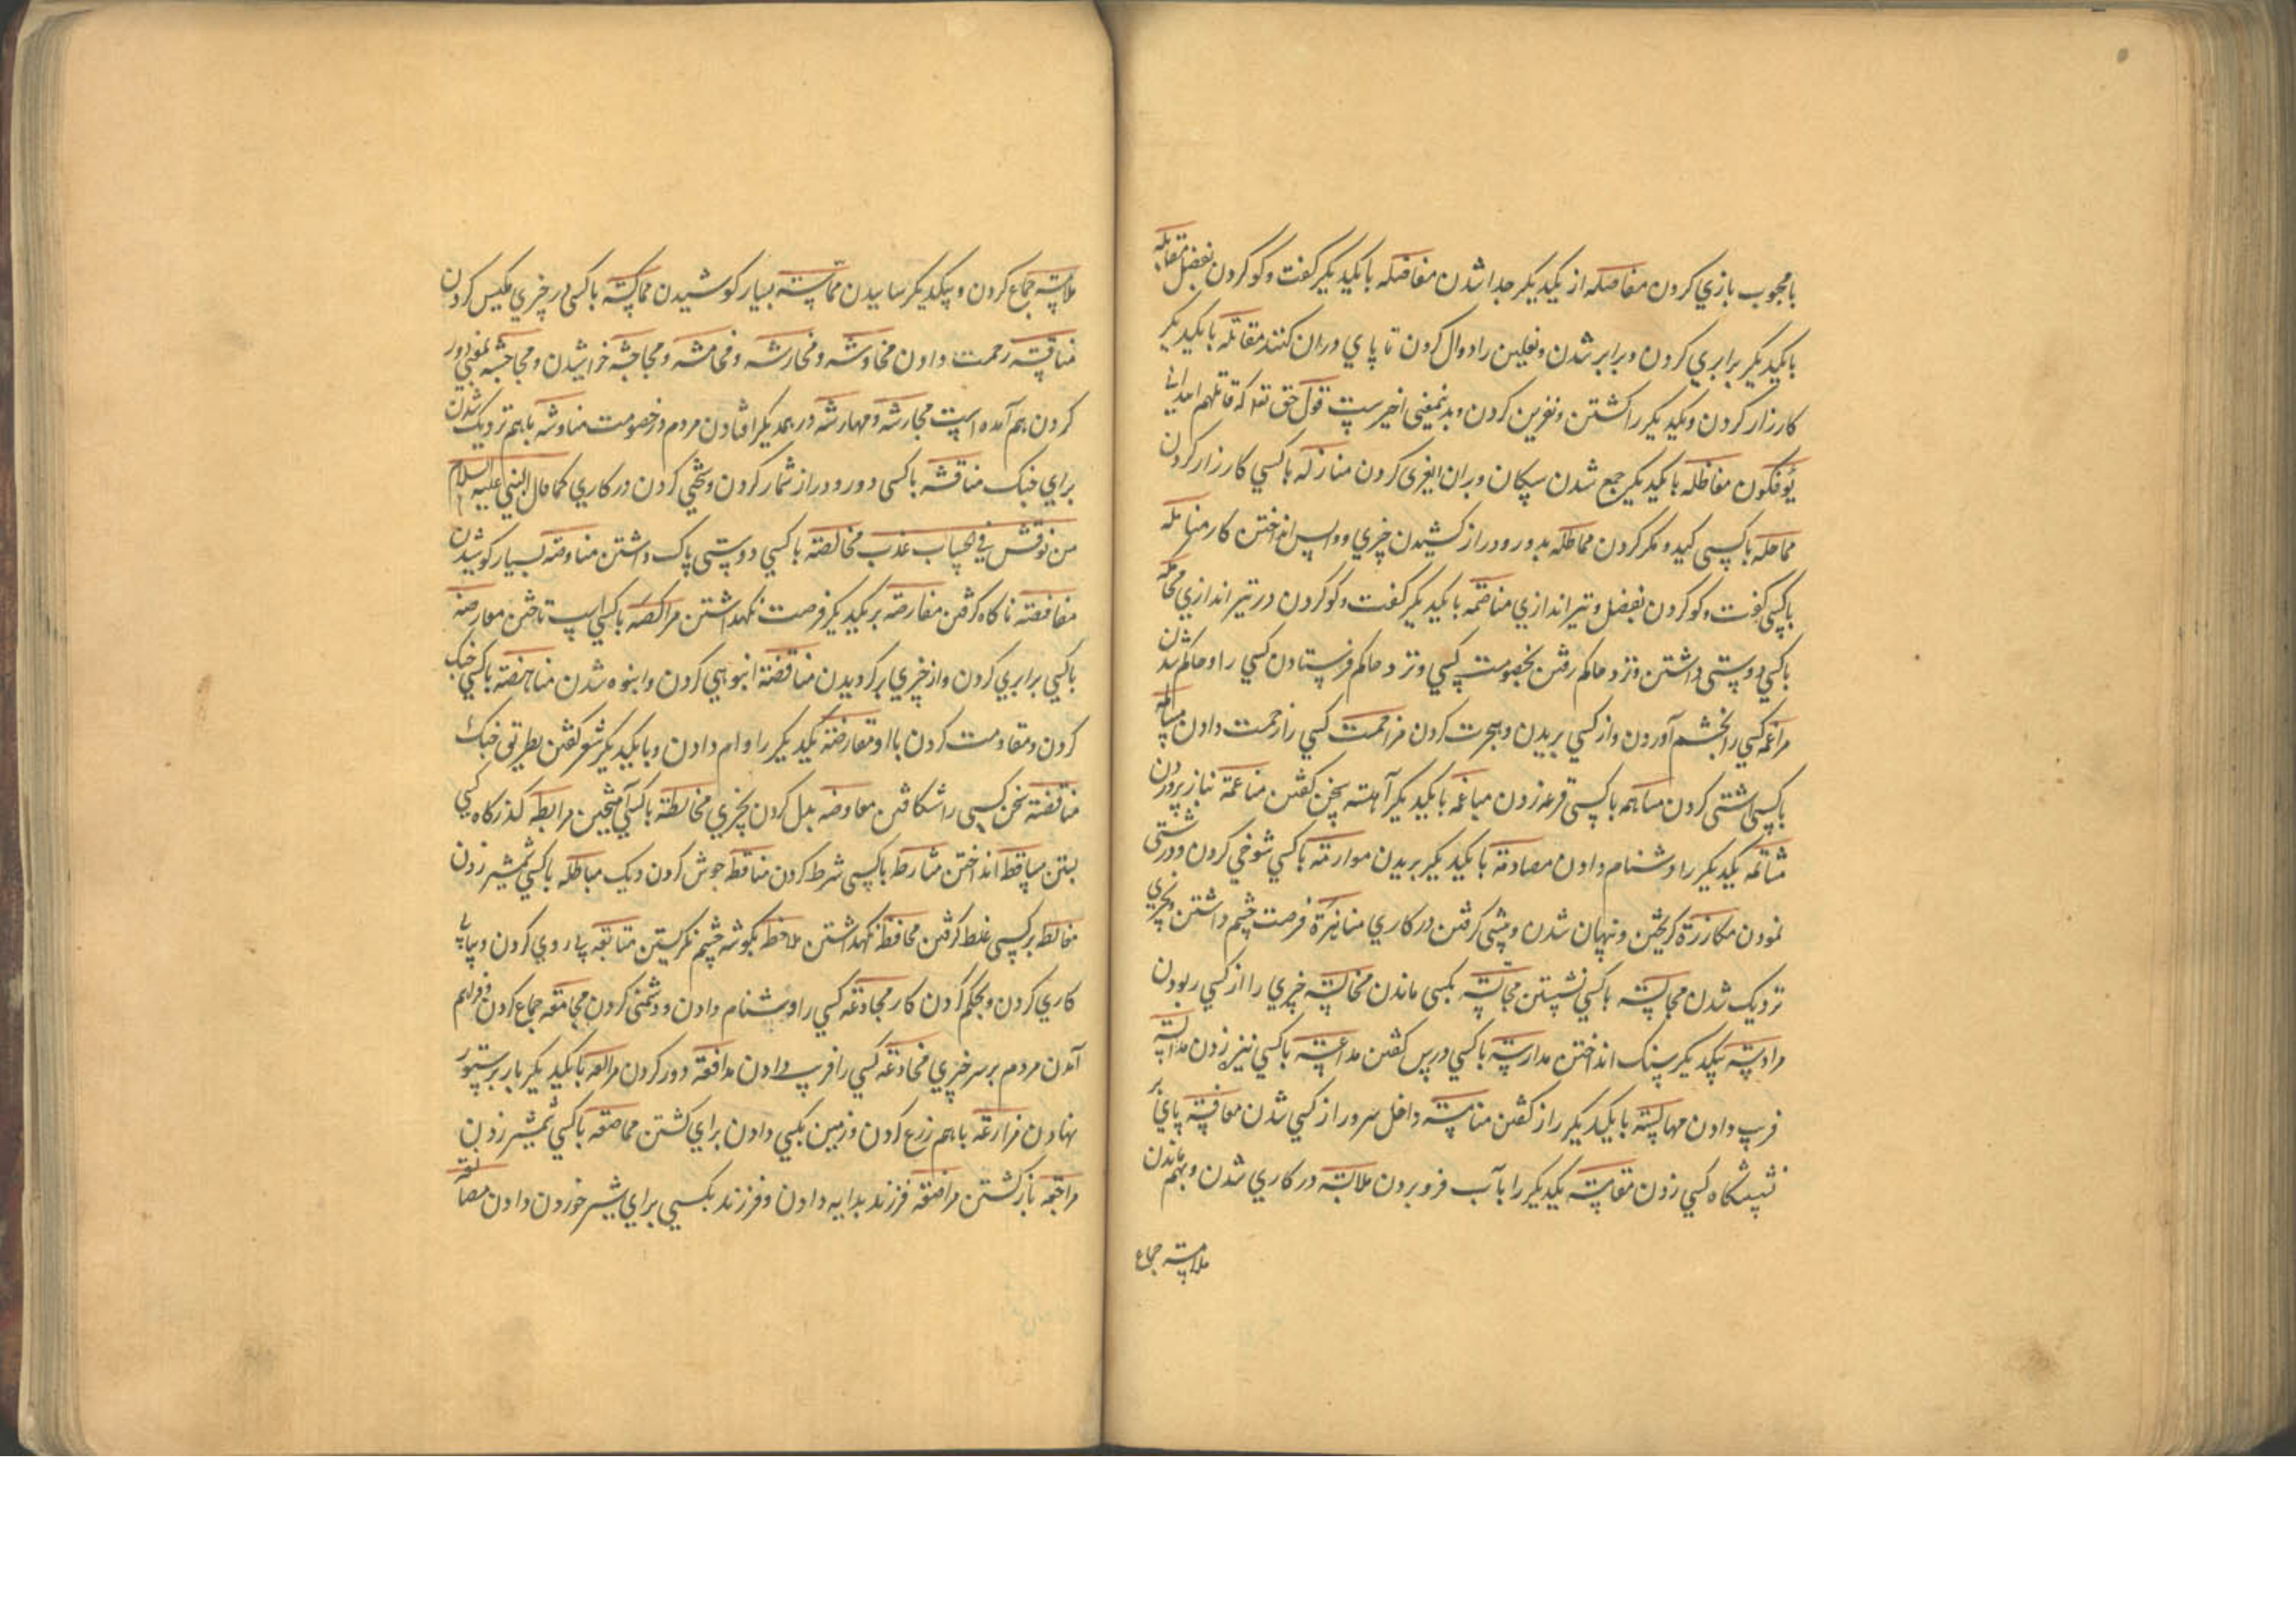 بامحبوب بازي كردن مفاصله از يكديكر جدا شدن مفاضله بايكديكر كفت و كو كردن بفضل مقابله
بايكديكر برابري كردن و برابر شدن و نعلين را دوال كردن تا پاي دران كنند مقاتله بايكديكر
كارزار كردن و يكديكر را كشتن و نفرين كردن و بدينمعنى اخيرست قول حق تعه كه قاتلهم الله اني
يؤفكون مفاظله بايكديكر جمع شدن سكان و بران ايغرى كردن منازله باكسي كارزار كردن
مماحله باكسى كيد و مكر كردن مماطله بدور و دراز كشيدن چيزي و واپس انداختن كار مناضله
باكسى كفت و كو كردن بفضل و تير اندازي مناضمه بايكديكر كفت و كو كردن در تير اندازي محاكمه
باكسي دوستى داشتن و نزد حاكم رفتن بخصومت كسي و نزد حاكم فرستادن كسي را و حاكم شدن
مراغمه كسي را بخشم آوردن و از كسي بريدن و هجرت كردن مزاحمت كسي را زحمت دادن مسالمه
باكسى اشتى كردن مساهمه باكسى قرعه زدن مباغمه بايكديكر آهسته سخن كفتن مناعمة بناز پروردن
مشاتمه يكديكر را دشنام دادن مصادمة بايكديكر بريدن موارمة باكسي شوخي كردن و درشتى
نمودن مكارزة كريختن و پنهان شدن و پيشى كرفتن در كاري مناهزة فرصت چشم داشتن و بچيزي
نزديك شدن مجالسة باكسي نشستن مجانسة بكسى ماندن مخالسة چيزي را از كسي ربودن
مرادسة بيكديكر سنك انداختن مدارسة باكسي درس كفتن مداعسة باكسي نيزه زدن مدالسة
فريب دادن مهالسة بايكديكر راز كفتن منامسة داخل سرور از كسي شدن معافسة پاي بر
نشستكاه كسي زدن مقامسة يكديكر را بآب فرو بردن ملابسة در كاري شدن و بهم ماندن
ملامسة جماع
ملامسة جماع كردن و بيكديكر ساييدن مماسة بسيار كوشيدن مماكسة باكسى در چيزي مكيس كردن
مناقسة زحمت دادن مخاوشة و مخارشة و مخامشة و مجاحشة خراشيدن و مجاحشة بمعنى دور
كردن هم آمده است مجارشة و مهارشة در همديكر افتادن مردم در خصومت مناوشة باهم نزديك شدن
براي جنك مناقشة باكسى دور و دراز شمار كردن و سختي كردن در كاري كما قال النبي عليه السلام
من نوقش في الحساب عذب مخالصة باكسي دوستى پاك داشتن مناوصة بسيار كوشيدن
مغافصة ناكاه كرفتن مفارصة بر يكديكر فرصت نكهداشتن مراكضة باكسي اسپ تاختن معارضة
باكسي برابري كردن و از چيزي بر كرديدن مناقضة انبوهي كردن و انبوه شدن مناهضة باكسي جنك
كردن و مقاومت كردن باا و مقارضة يكديكر را وام دادن و بايكديكر شعر كفتن بطريق جنك
مناقضة سخن كسى را شكافتن معاوضه بدل كردن بچيزي مخالطة باكسي آميختن مرابطه كذركاه كسي
بستن مساقطه انداختن مشارطه باكسى شرط كردن مناقطه جوش كردن ديك مباطله باكسي شمشير زدن
مغالطه بركسى غلط كرفتن محافظه نكهداشتن ملاحظه بكوشه چشم نكريستن متابعه پي روي كردن و پياپي
كاري كردن و محكم كردن كار مجادعه كسي را دشنام دادن و دشمنى كردن مجامعه جماع كردن و فراهم
آمدن مردم بر سر چيزي مخادعه كسي را فريب دادن مدافعة دور كردن مرابعه بايكديكر بار برستور
نهادن مزارعة باهم زرع كردن و زمين بكسي دادن براي كشتن مماصعه باكسي شمشير زدن
مراجعه بازكشتن مراضعه فرزند بدايه دادن و فرزند بكسي براي شير خوردن دادن مصانعة